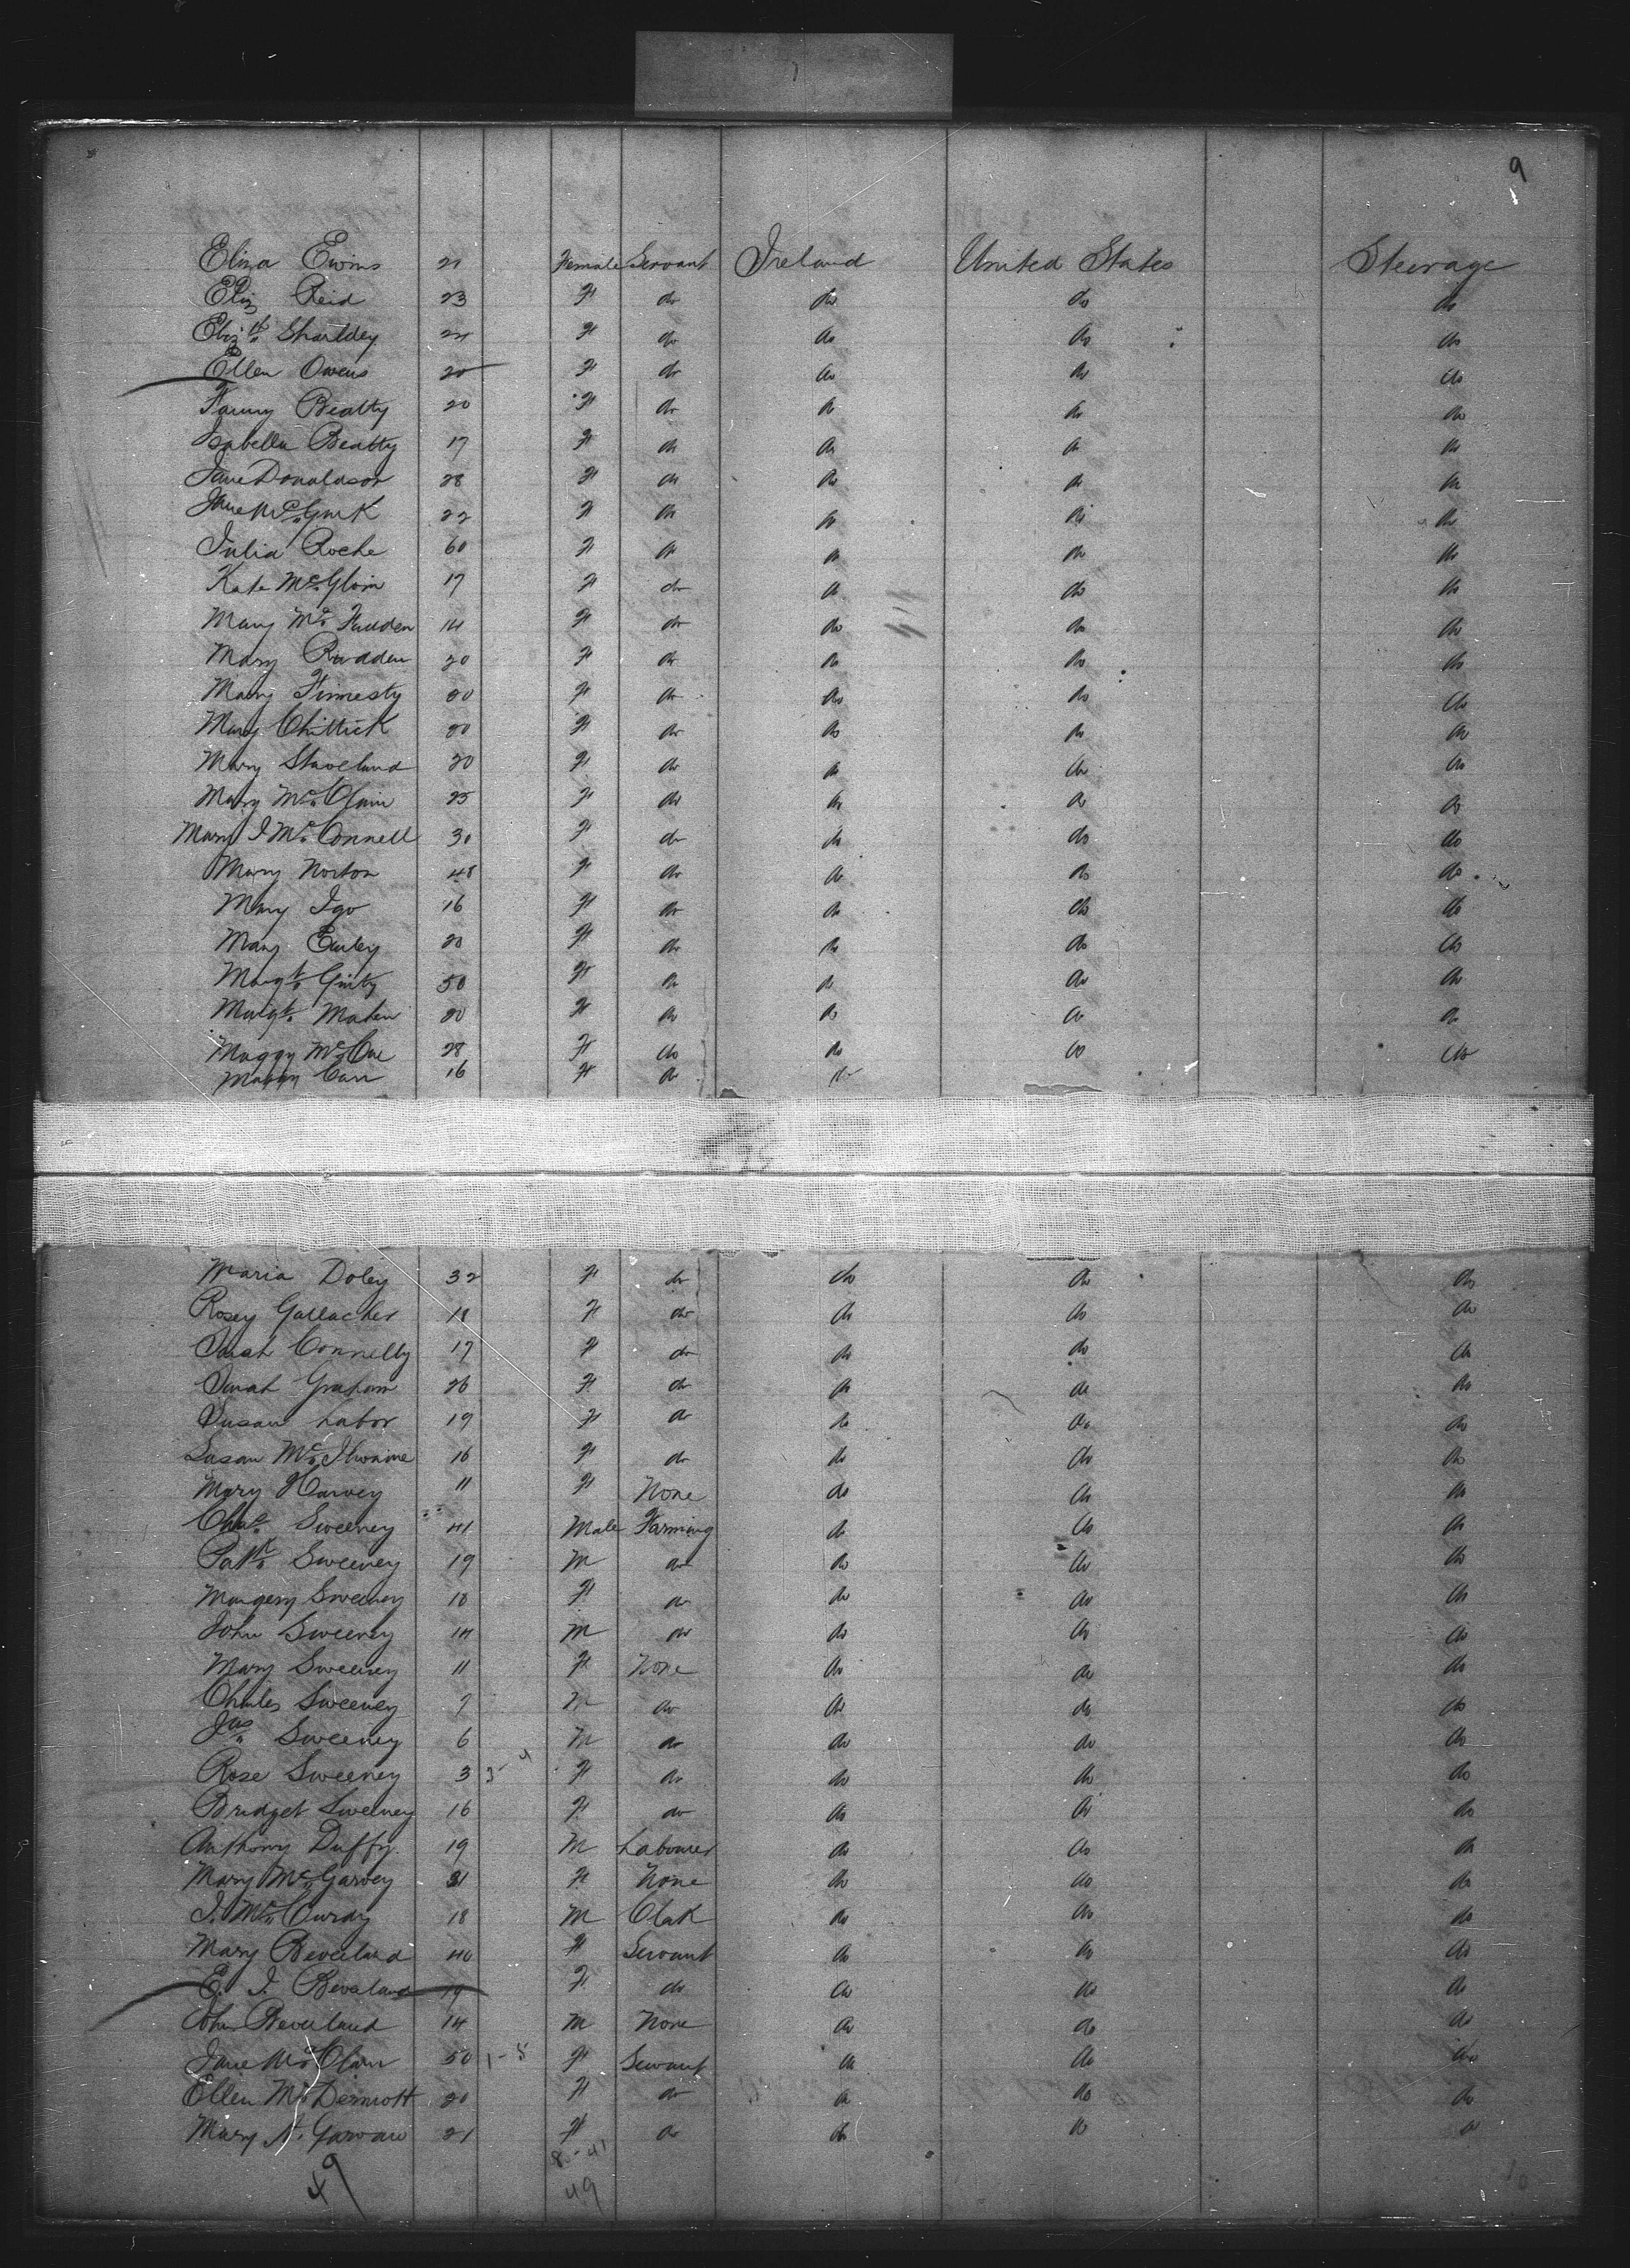 9
Eliza Ewins 21 Female Servant Ireland United States Steerage
Eliz Reid 23 F do do do do
Elizth 24 F do do do do
Ellen Owens 20 F do do do do
Fanny Beatty 20 F do do do do
Isabella Beatty 17 F do do do do
Jane Donaldson 28 F do do do do
Jane McGurk 22 F do do do do
Julia Roche 60 F do do do do
Kate McGloin 17 F do do do do
Mary McFadden 14 F do do do do
Mary Rudden 20 F do do do do
Mary 20 F do do do do
Mary Chittick 20 F do do do do
Mary Staveland 20 F do do do do
Mary McClain 25 F do do do do
Mary J McConnell 30 F do do do do
Mary Norton 48 F do do do do
Mary Igo 16 F do do do do
Mary Curley 20 F do do do do
Margt Ginty 50 F do do do do
Margt 20 F do do do do
Maggy McCue 28 F do do do do
Maggy Carr 16 F do do
Maria Doley 32 F do do do do
Rosey Gallacher 18 F do do do do
Sarah Connelly 17 F do do do do
Sarah Graham 26 F do do do do
Susan Labor 19 F do do do do
Susan McIlwaine 16 F do do do do
Mary Harvey 11 F None do do do
Chas Sweeney 41 Male Farming do do do
Patk Sweeney 19 M do do do do
Margery Sweeney 18 F do do do do
John Sweeney 14 M do do do do
Mary Sweeney 11 F None do do do
Charles Sweeney 9 M do do do do
Jas Sweeney 6 M do do do do
Rose Sweeney 3 3-4 F do do do do
Bridget Sweeney 16 F do do do do
Anthony Duffy 19 M Labourer do do do
Mary McGarvey 21 F None do do do
J. McCurdy 18 M Clark do do do
Mary Beverland 40 F Servant do do do
E. J. Beverland 19 F do do do do
John Beverland 14 M None do do do
Jane McClain 50 1-8 F Servant do do do
Ellen McDermott 20 F do do do do
Mary 21 F do do do do
8-41
49 49